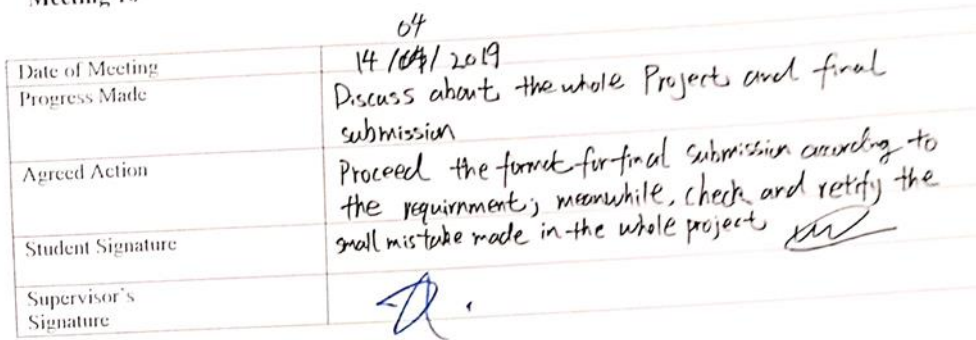 Meeting
04
Date of Meeting 14 / / 2019
Progress Made Discuss about the whole Project and final
submission
Agreed Action Proceed the format for final submission according to
the requirnment; meanwhile, check and retify the
Student Signature small mistake made in the whole project
Supervisor's
Signature